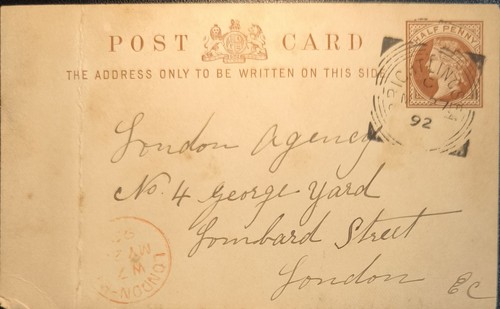 POST CARD
HALF PENNY
THE ADDRESS ONLY TO BE WRITTEN ON THIS SIDE
92
London Agency
No. 4 George Yard
Lombard Street
London
EC
LONDON
MY
92